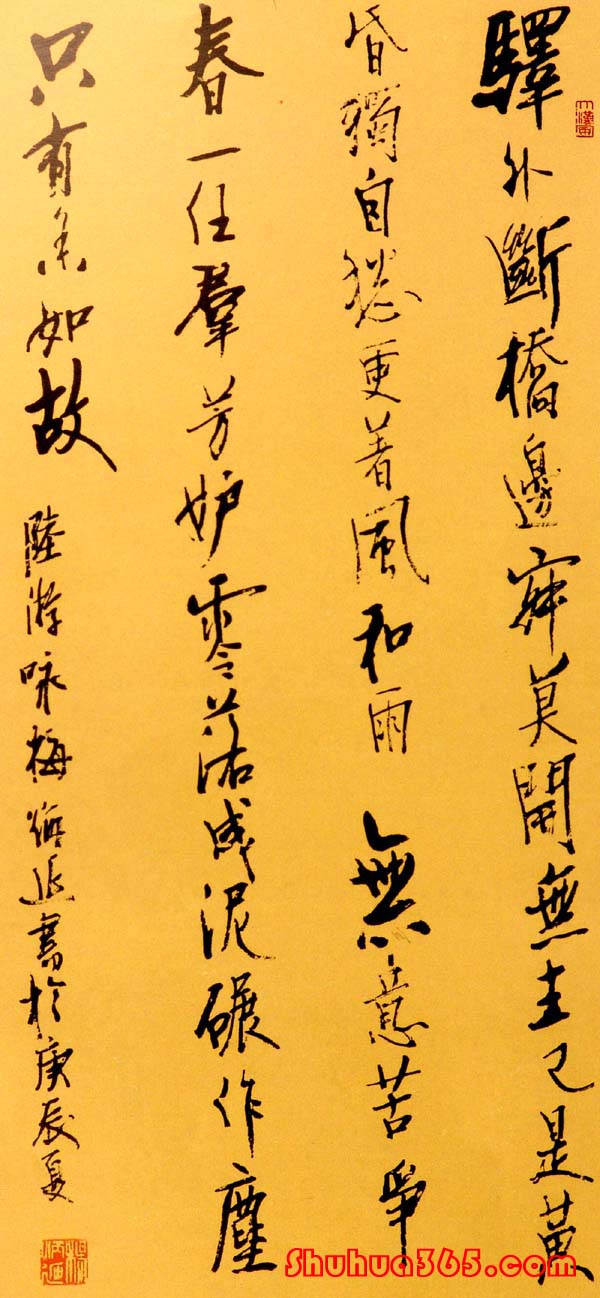 驛外斷橋邊寂莫開無主已是黃
昏獨自愁更著風和雨 無意苦爭
春一任羣芳妒零落成泥碾作塵
只有香如故 陸游咏梅 書於庚辰夏
Shuhua365.com